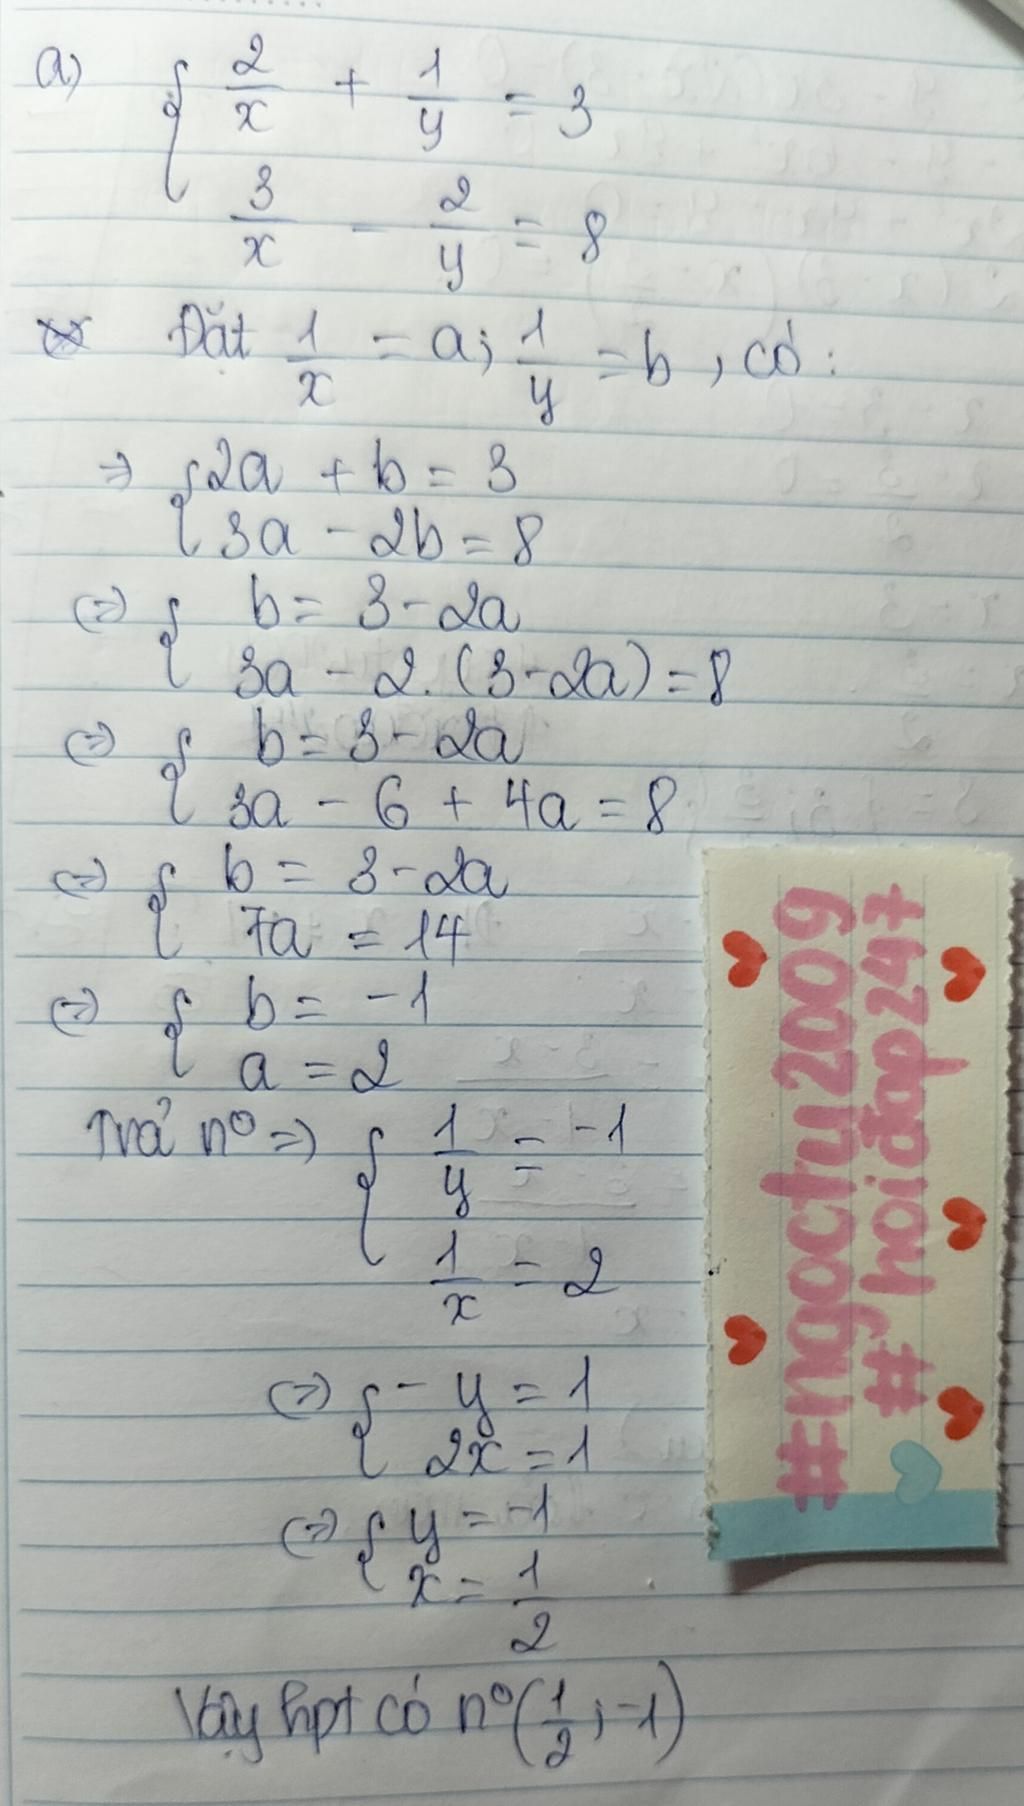 a) { 2/x + 1/y = 3
3/x - 2/y = 8
Đặt 1/x = a; 1/y = b, có:
=> { 2a + b = 3
3a - 2b = 8
(=) { b = 3 - 2a
3a - 2.(3 - 2a) = 8
(=) { b = 3 - 2a
3a - 6 + 4a = 8
(=) { b = 3 - 2a
7a = 14
(=) { b = -1
a = 2
Trả nº => { 1/y = -1
1/x = 2
(=) { - y = 1
2x = 1
(=) { y = -1
x = 1/2
Vậy hpt có nº (1/2; -1)
#ngoctu2009
#hoiđap247